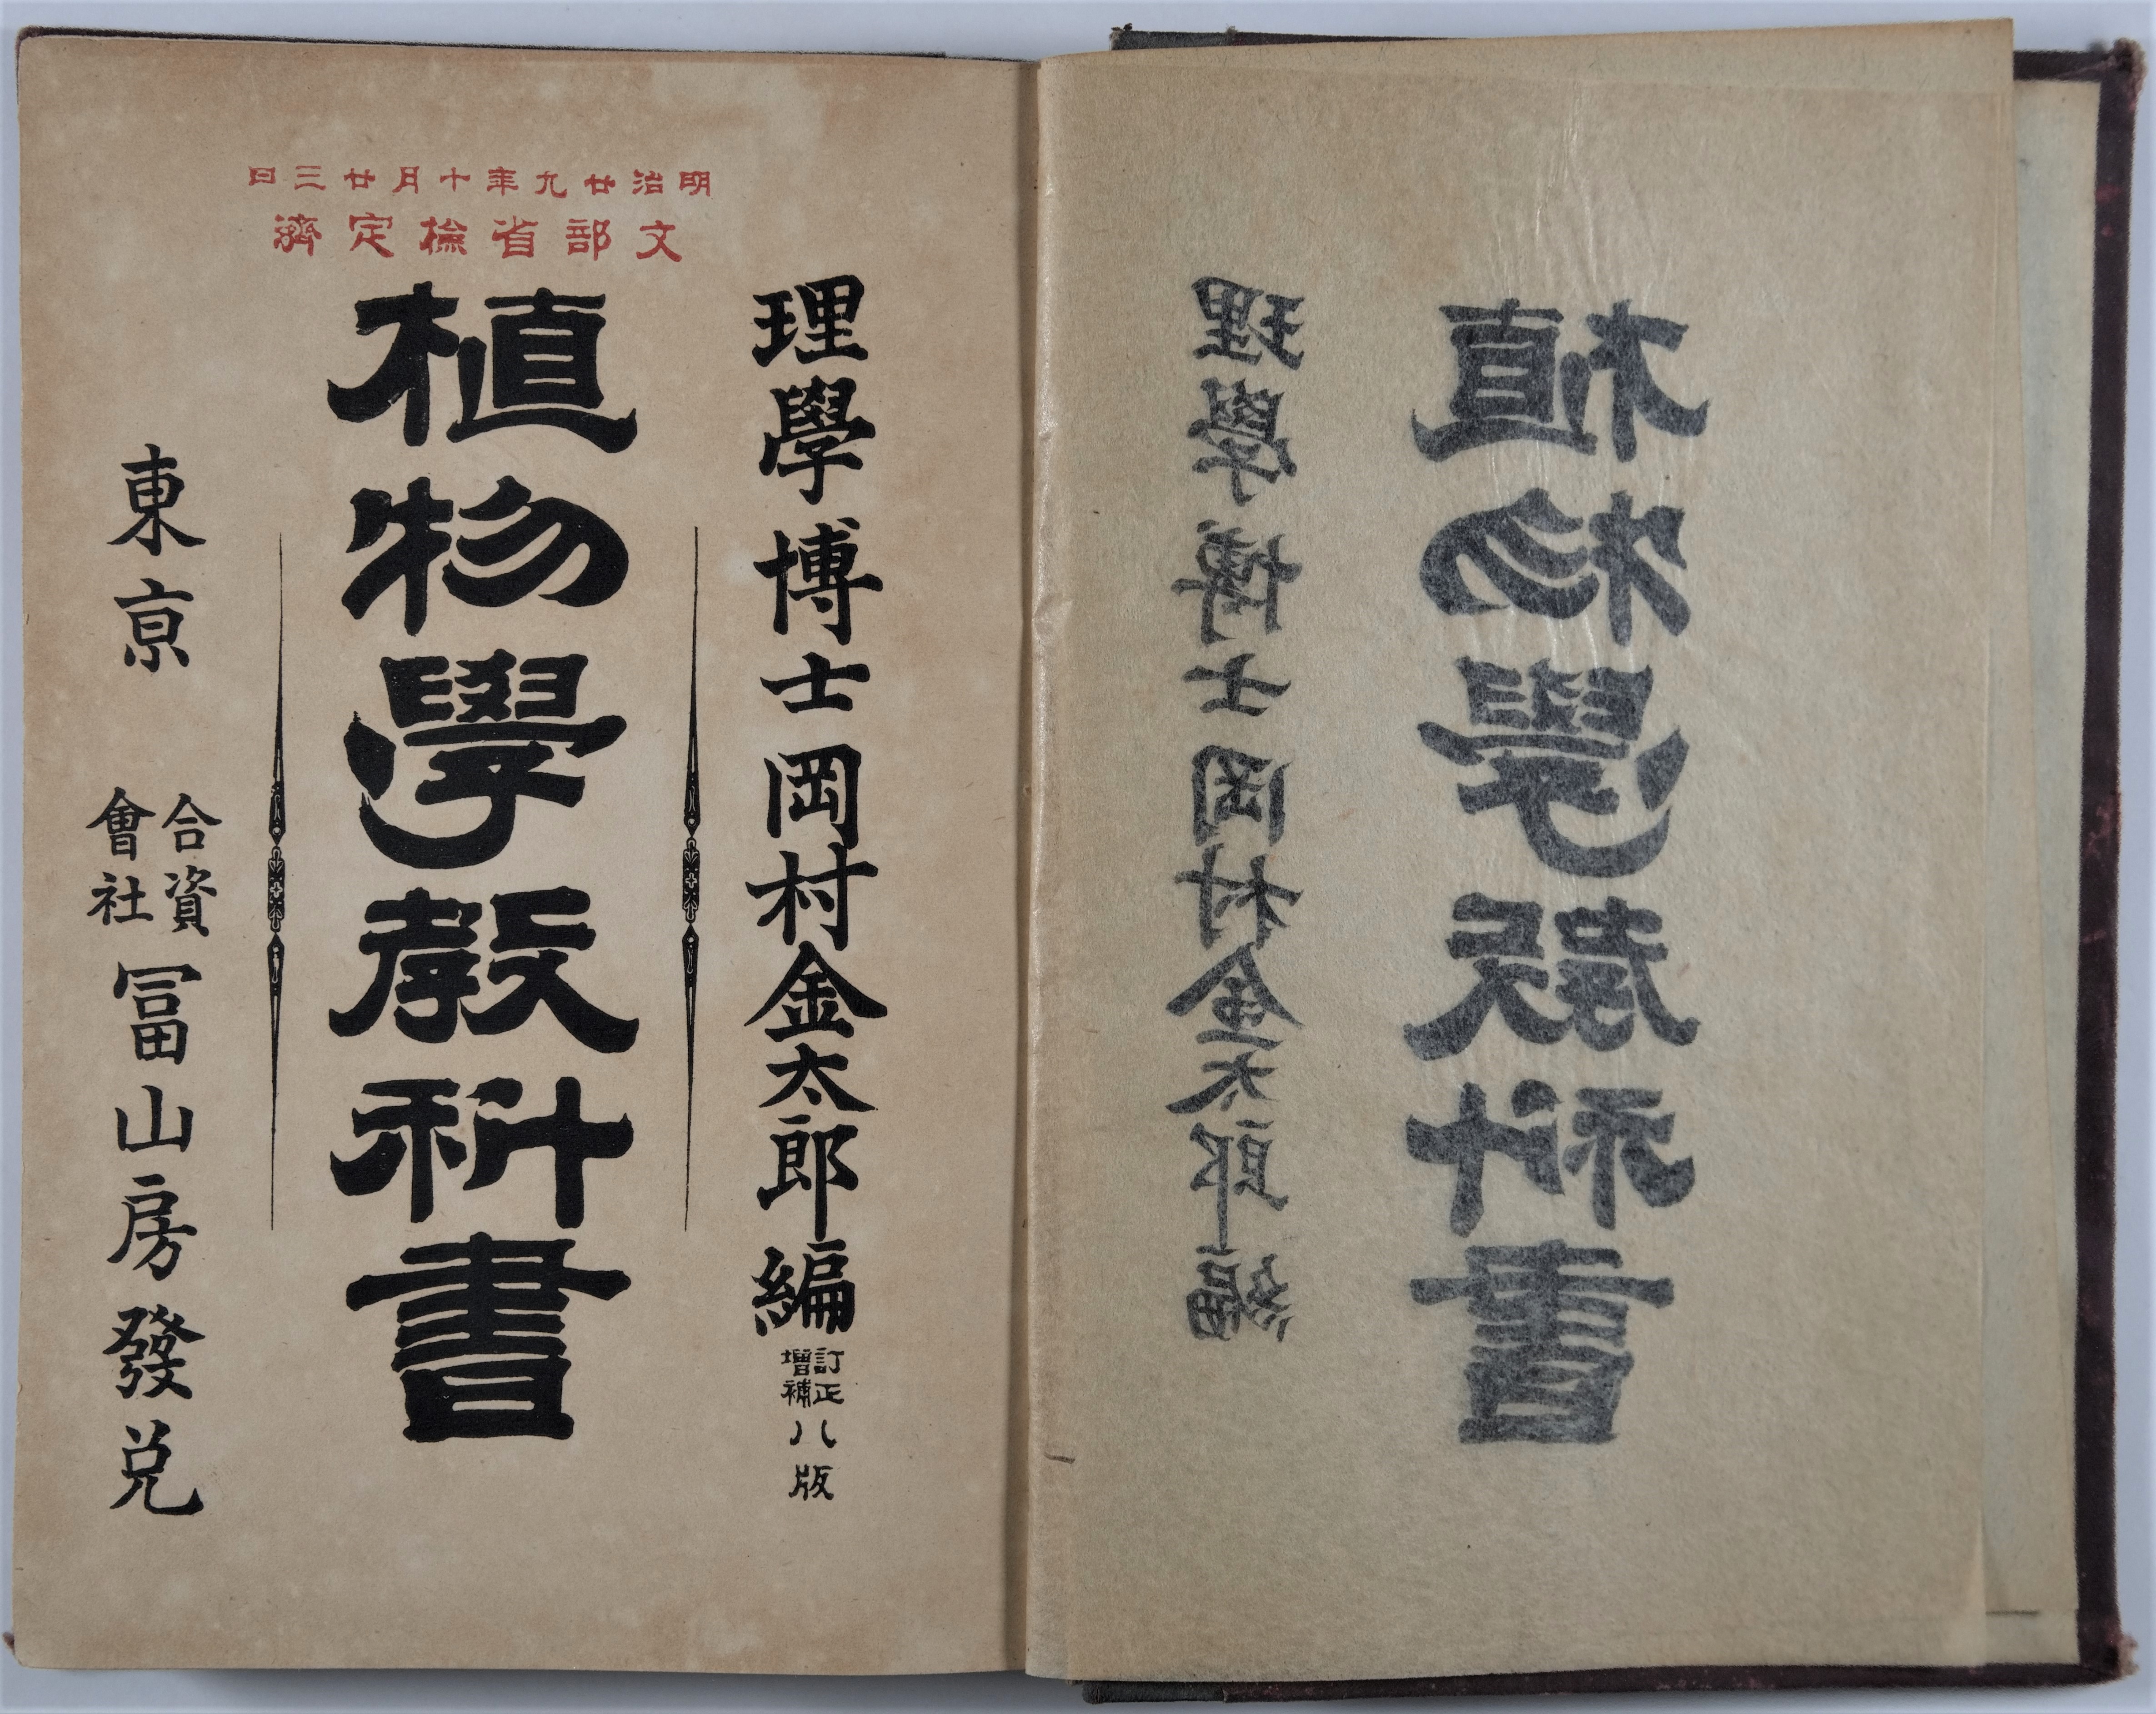 植物學敎科書
理學博士岡村金太郎編
明治廿九年十月廿三日
文部省檢定濟
理學博士岡村金太郎編 訂正增補八版
植物學敎科書
東亰 合資會社 冨山房發兌